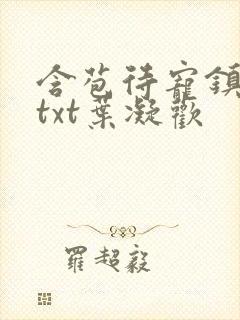 含苞待寵鎮
txt葉凝歡
羅超毅